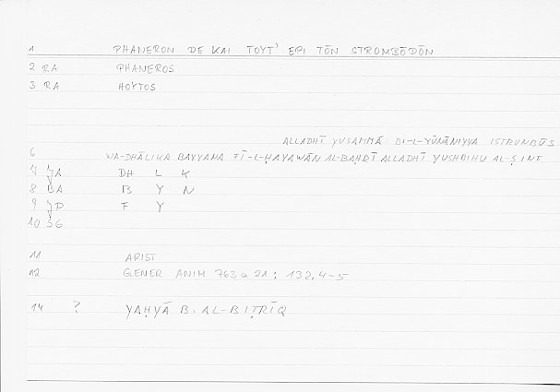 1 PHANERON DE KAI TOYT' EPI TŌN STROMBŌDŌN
2 RA PHANEROS
3 RA HOYTOS
ALLADHĪ YUSAMMĀ BI-L-YŪNĀNIYYA ISṬRUNBŪS
6 WA-DHĀLIKA BAYYANA FĪ-L-ḤAYAWĀN AL-BAḤRĪ ALLADHĪ YUSHBIHU AL-Ṣ
7 JA DH L K
8 BA B Y N
9 JP F Y
10 SG
11 ARIST
12 GENER ANIM 763 a 21 ; 132,4-5
14 ? YAḤYĀ B. AL-BIṬRĪQ